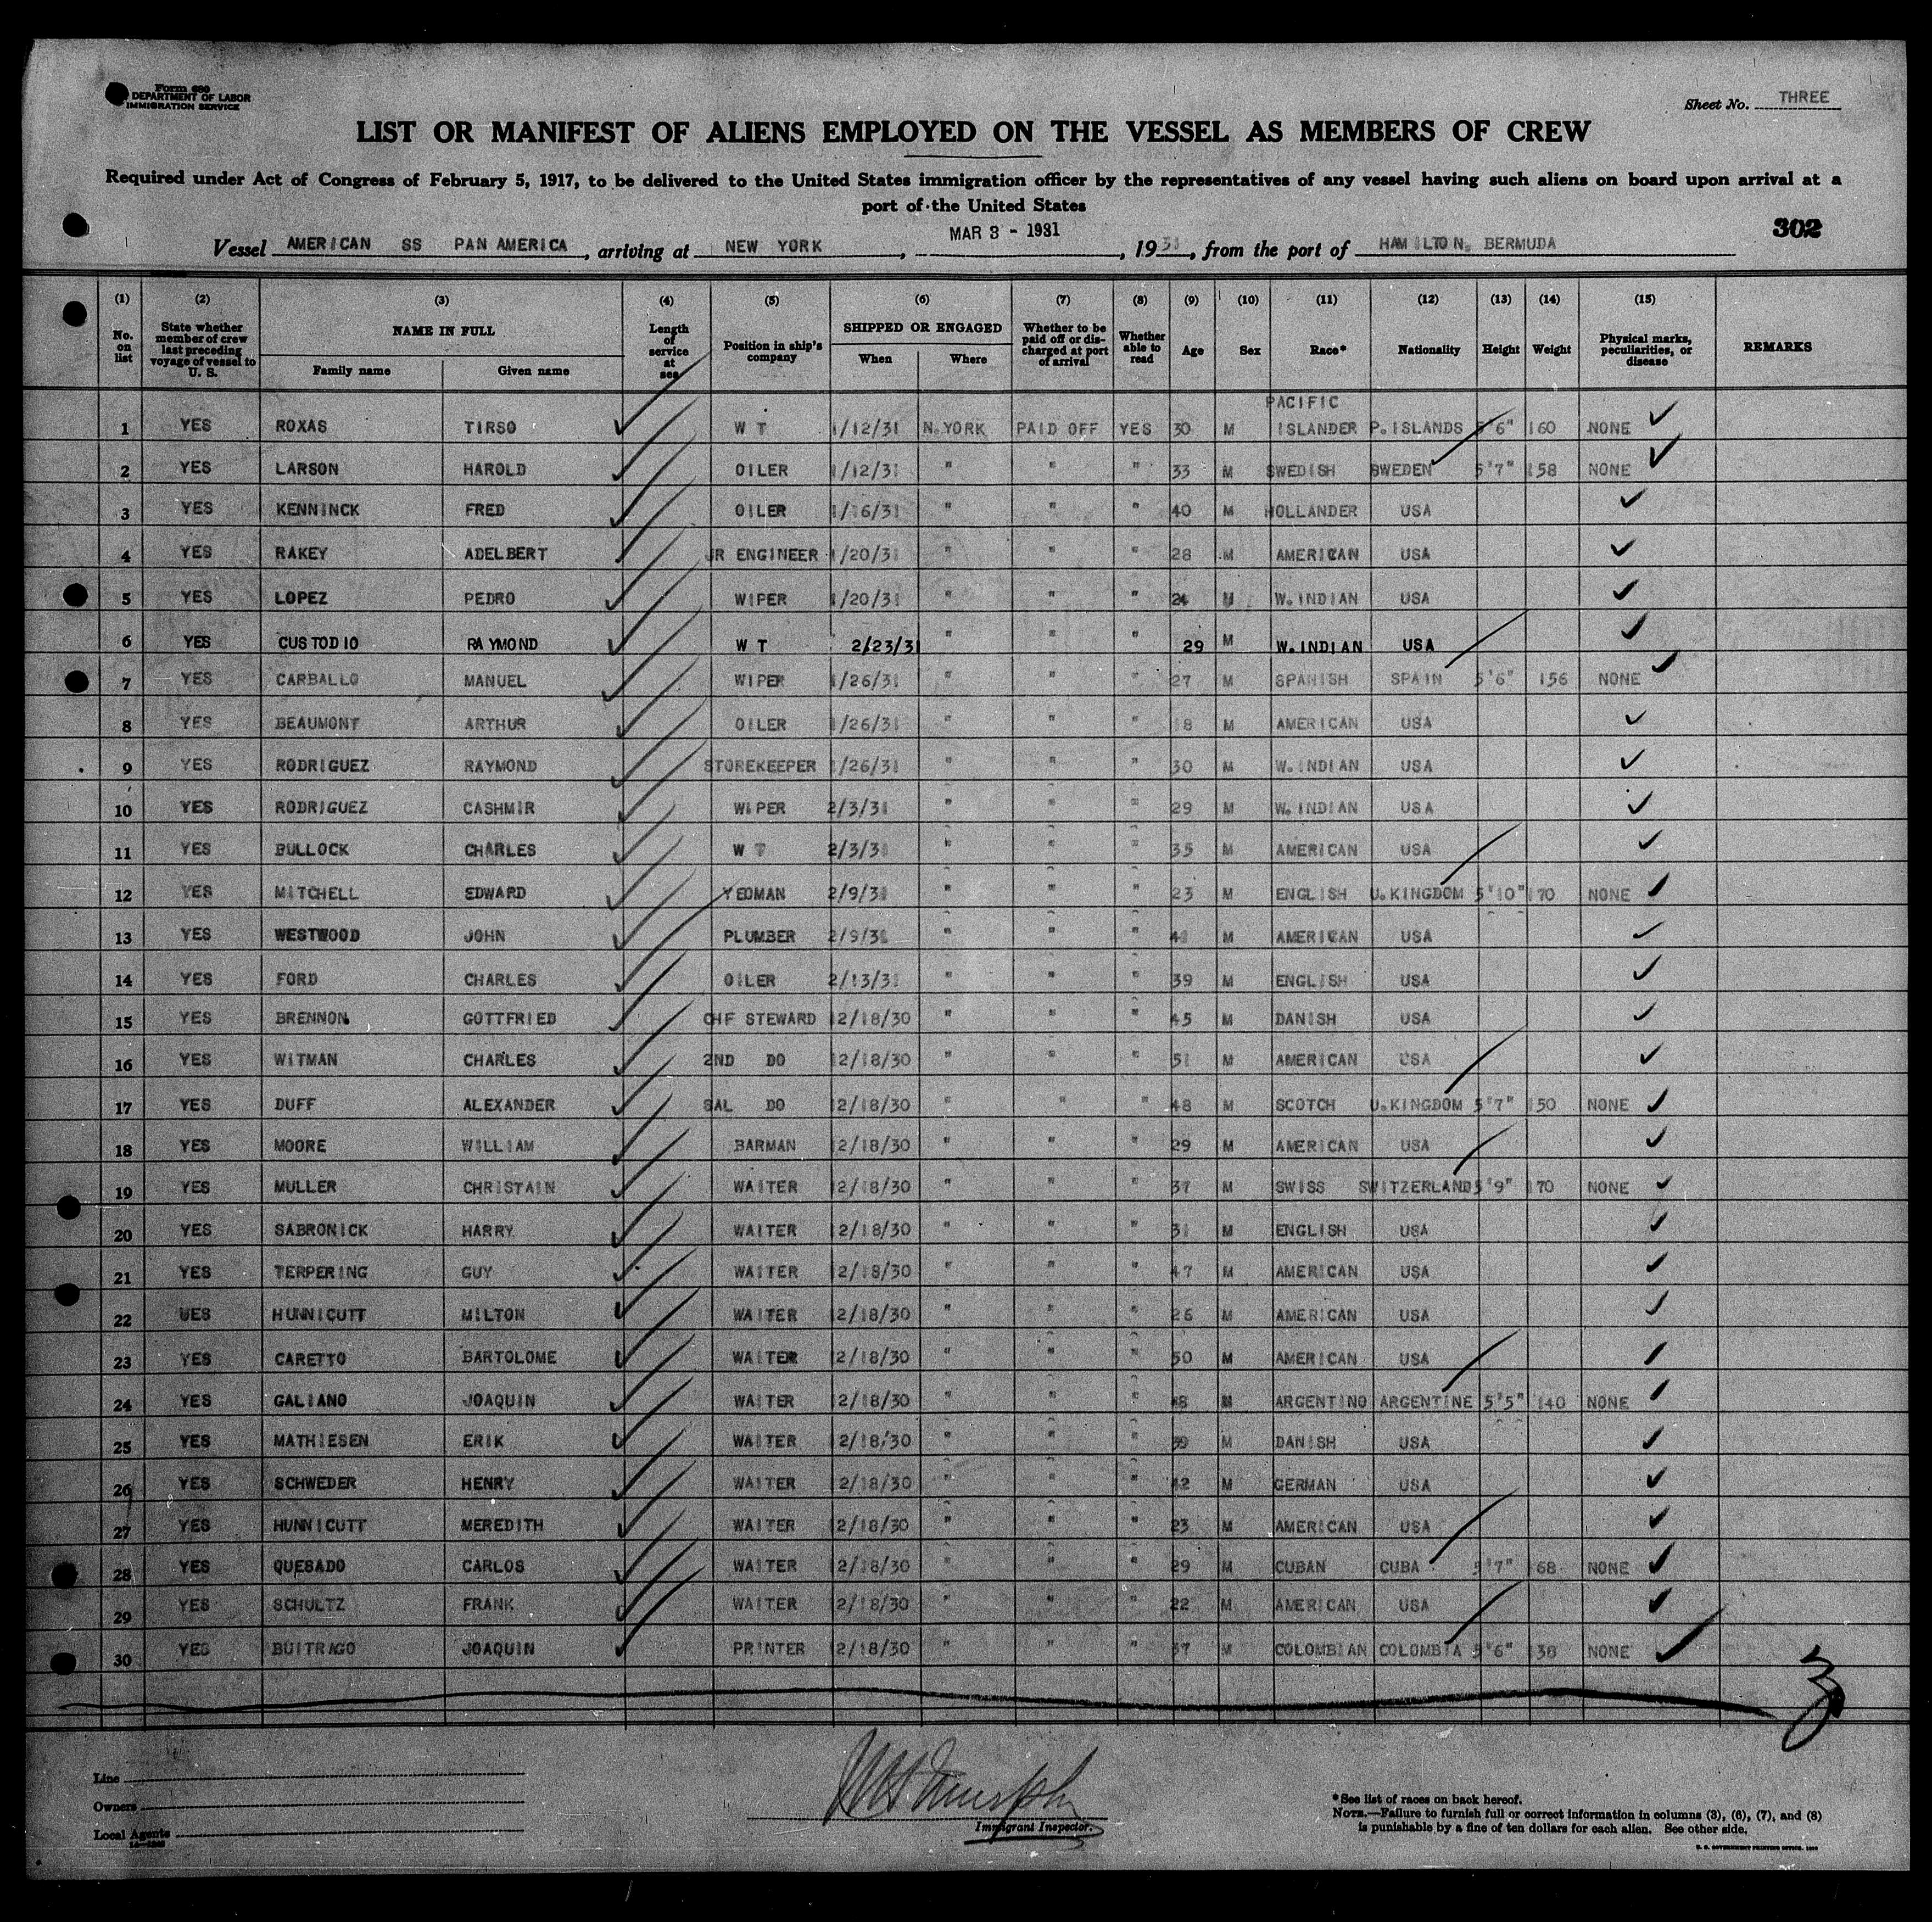 Form 680
DEPARTMENT OF LABOR
IMMIGRATION SERVICE
Sheet No. THREE
LIST OR MANIFEST OF ALIENS EMPLOYED ON THE VESSEL AS MEMBERS OF CREW
Required under Act of Congress of February 5, 1917, to be delivered to the United States immigration officer by the representatives of any vessel having such aliens on board upon arrival at a
port of the United States
302
Vessel AMERICAN SS PAN AMERICA, arriving at NEW YORK, MAR 3 - 1931, 1931, from the port of HAMILTON, BERMUDA
(1) (2) (3) (4) (5) (6) (7) (8) (9) (10) (11) (12) (13) (14) (15)
No. on list State whether member of crew last preceding voyage of vessel to U. S. NAME IN FULL Family name Given name Length of service at sea Position in ship's company SHIPPED OR ENGAGED When Where Whether to be paid off or discharged at port of arrival Whether able to read Age Sex Race* Nationality Height Weight Physical marks, peculiarities, or disease REMARKS
1 YES ROXAS TIRSO W T 1/12/31 N.YORK PAID OFF YES 30 M PACIFIC ISLANDER P.ISLANDS 5'6" 160 NONE
2 YES LARSON HAROLD OILER 1/12/31 " " " 33 M SWEDISH SWEDEN 5'7" 158 NONE
3 YES KENNINCK FRED OILER 1/16/31 " " " 40 M HOLLANDER USA
4 YES RAKEY ADELBERT JR ENGINEER 1/20/31 " " " 28 M AMERICAN USA
5 YES LOPEZ PEDRO WIPER 1/20/31 " " " 24 M W.INDIAN USA
6 YES CUSTODIO RAYMOND W T 2/23/31 " " " 29 M W.INDIAN USA
7 YES CARBALLO MANUEL WIPER 1/26/31 " " " 27 M SPANISH SPAIN 5'6" 156 NONE
8 YES BEAUMONT ARTHUR OILER 1/26/31 " " " 18 M AMERICAN USA
9 YES RODRIGUEZ RAYMOND STOREKEEPER 1/26/31 " " " 30 M W.INDIAN USA
10 YES RODRIGUEZ CASHMIR WIPER 2/3/31 " " " 29 M W.INDIAN USA
11 YES BULLOCK CHARLES W T 2/3/31 " " " 35 M AMERICAN USA
12 YES MITCHELL EDWARD YEOMAN 2/9/31 " " " 23 M ENGLISH U.KINGDOM 5'10" 170 NONE
13 YES WESTWOOD JOHN PLUMBER 2/9/31 " " " 41 M AMERICAN USA
14 YES FORD CHARLES OILER 2/13/31 " " " 39 M ENGLISH USA
15 YES BRENNON GOTTFRIED CHF STEWARD 12/18/30 " " " 45 M DANISH USA
16 YES WITMAN CHARLES 2ND DO 12/18/30 " " " 51 M AMERICAN USA
17 YES DUFF ALEXANDER SAL DO 12/18/30 " " " 48 M SCOTCH U.KINGDOM 5'7" 150 NONE
18 YES MOORE WILLIAM BARMAN 12/18/30 " " " 29 M AMERICAN USA
19 YES MULLER CHRISTAIN WAITER 12/18/30 " " " 37 M SWISS SWITZERLAND 5'9" 170 NONE
20 YES SABRONICK HARRY WAITER 12/18/30 " " " 31 M ENGLISH USA
21 YES TERPERING GUY WAITER 12/18/30 " " " 47 M AMERICAN USA
22 UES HUNNICUTT MILTON WAITER 12/18/30 " " " 26 M AMERICAN USA
23 YES CARETTO BARTOLOME WAITER 12/18/30 " " " 50 M AMERICAN USA
24 YES GALIANO JOAQUIN WAITER 12/18/30 " " " M ARGENTINO ARGENTINE 5'5" 140 NONE
25 YES MATHIESEN ERIK WAITER 12/18/30 " " " 39 M DANISH USA
26 YES SCHWEDER HENRY WAITER 12/18/30 " " " 42 M GERMAN USA
27 YES HUNNICUTT MEREDITH WAITER 12/18/30 " " " 23 M AMERICAN USA
28 YES QUESADO CARLOS WAITER 12/18/30 " " " 29 M CUBAN CUBA 5'7" 168 NONE
29 YES SCHULTZ FRANK WAITER 12/18/30 " " " 22 M AMERICAN USA
30 YES BUITRAGO JOAQUIN PRINTER 12/18/30 " " " 37 M COLOMBIAN COLOMBIA 5'6" 138 NONE
3
Line
Owners
Local Agents
Immigrant Inspector.
*See list of races on back hereof.
NOTE.—Failure to furnish full or correct information in columns (3), (6), (7), and (8)
is punishable by a fine of ten dollars for each alien. See other side.